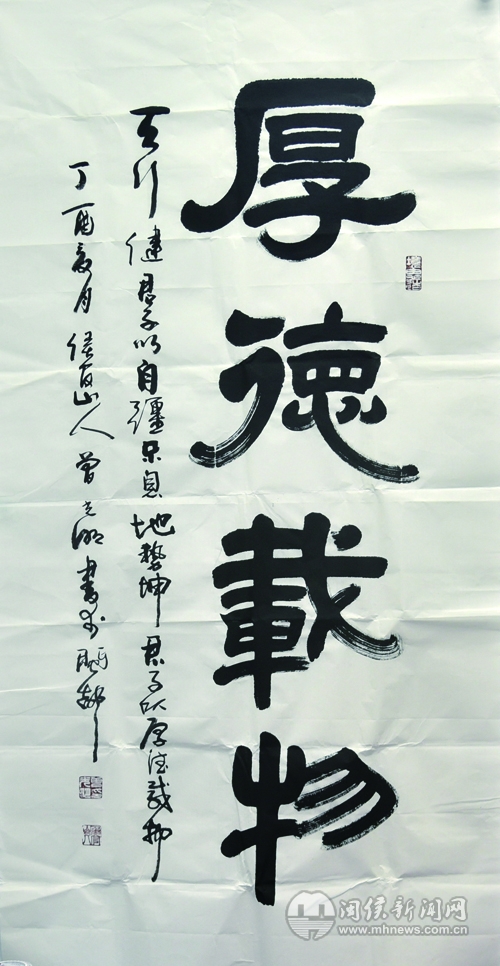 厚德載物
天行健君子以自彊不息地勢坤君子以厚德載物
丁酉夏月 山人曾 書於
闽侯新闻网
www.mhnews.com.cn